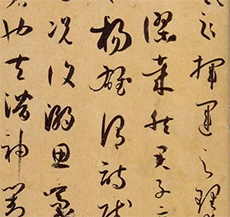 迷揮運之理
謬哉然君子立
楊雄謂詩賦
況復溺思毫
者也夫潛神對